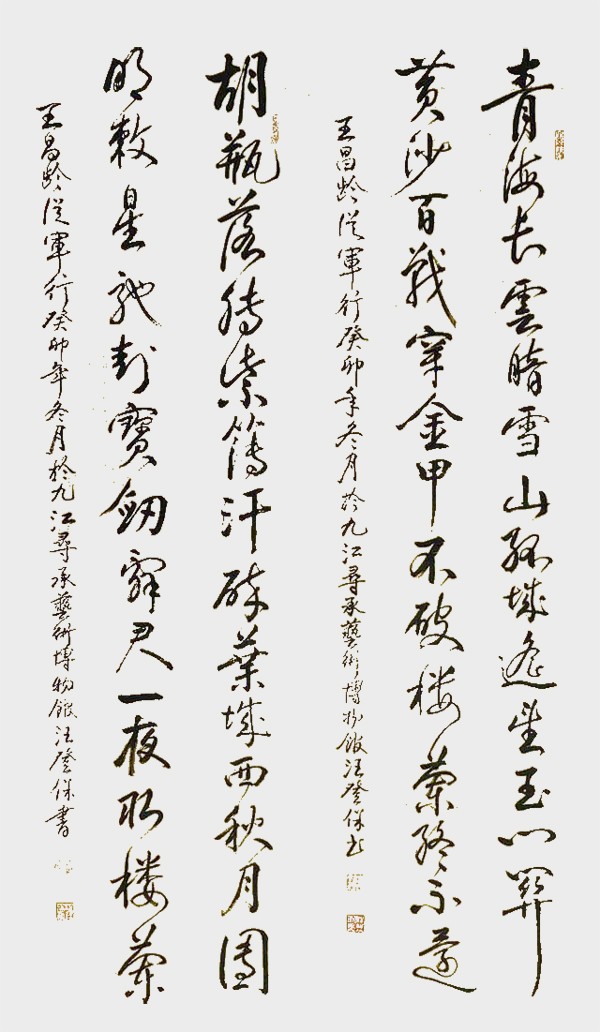 青海長雲暗雪山孤城遙望玉門關
黄沙百戰穿金甲不破楼蘭終不還
王昌龄從軍行癸卯年冬月於九江尋承藝術博物館汪登保書
胡瓶落膊紫薄汗碎葉城西秋月團
明敕星馳封寶劒辭君一夜取楼蘭
王昌龄從軍行癸卯年冬月於九江尋承藝術博物館汪登保書